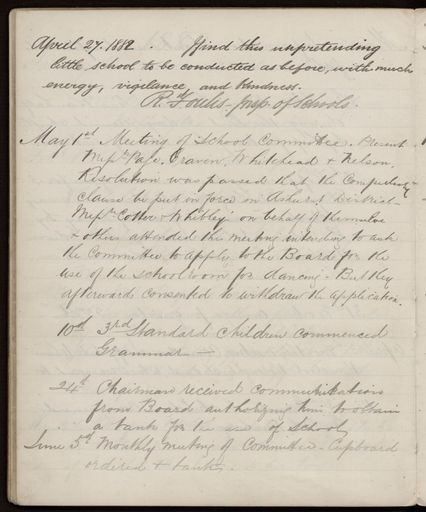 April 27. 1882. I find this unpretending
little school to be conducted as before, with much
energy, vigilance, and kindness.
R. Foulis - Insp. of Schools.
May 1st Meeting of School Committee. Present
Messrs Page, Craven, Whitehead & Nelson.
Resolution was passed that the Compulsory
clause be put in force on Ashurst District -
Messrs & Whibley on behalf of themselves
& others attended this meeting intending to ask
the Committee to apply to the Board for the
use of the schoolroom for dancing - But they
afterwards consented to withdraw the application.
10th 3rd Standard children commenced
Grammar -
24th Chairman received communication
from Board authorizing him to obtain
a tank for the use of School
June 5th Monthly meeting of Committee - Cupboard
ordered & tank.